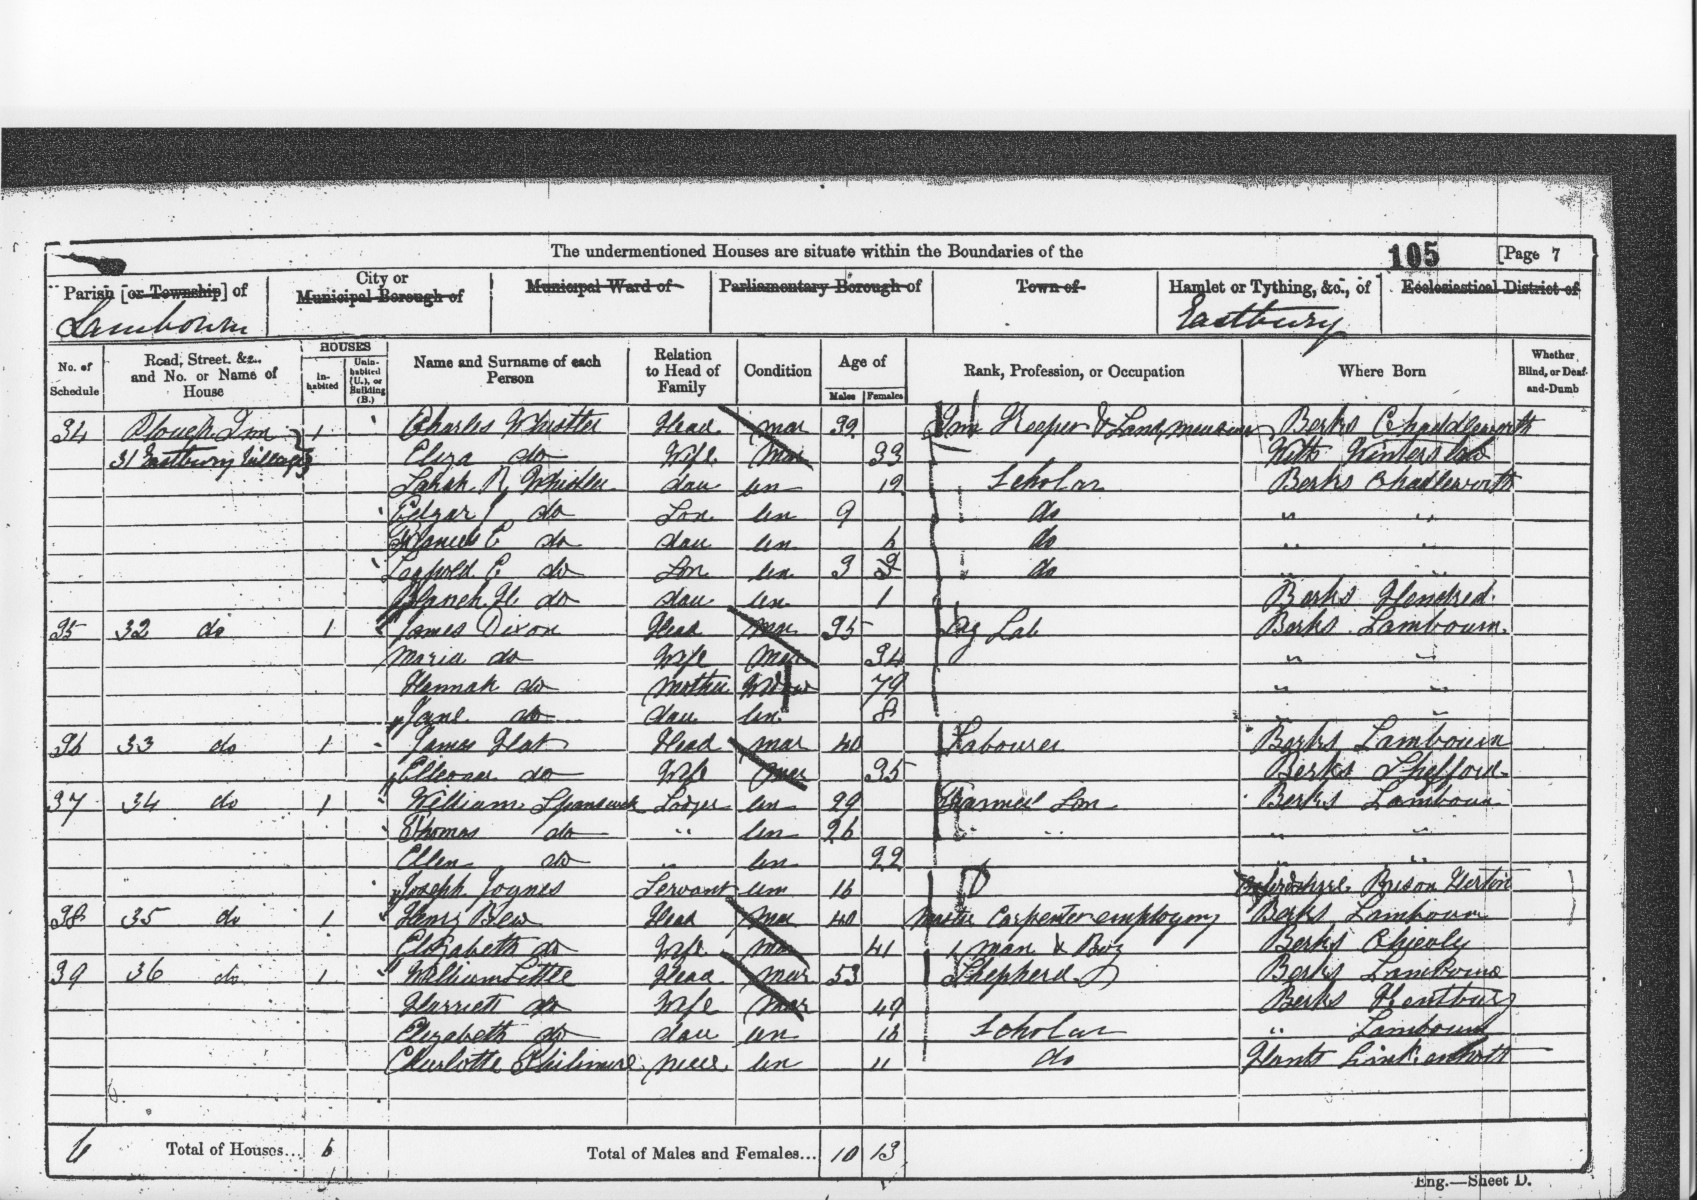 The undermentioned Houses are situate within the Boundaries of the 105 [Page 7
Parish [or Township] of City or Municipal Borough of Municipal Ward of Parliamentary Borough of Town of Hamlet or Tything, &c., of Ecclesiastical District of
Lambourn Eastbury
No. of Schedule Road, Street, &c., and No. or Name of House HOUSES Inhabited Uninhabited (U.), or Building (B.) Name and Surname of each Person Relation to Head of Family Condition Age of Males Females Rank, Profession, or Occupation Where Born Whether Blind, or Deaf-and-Dumb
34 Plough Inn 1 Charles Whistler Head mar 39 Inn Keeper & Land measurer Berks Chaddleworth
31 Eastbury Village Eliza do Wife mar 33 Wilts Winterslow
Sarah R Whistler dau un 12 Scholar Berks Chadleworth
Edgar do Son un 9 do " "
Frances E do dau un 6 do " "
Leopold C do Son un 3 do " "
Blanch H. do dau un 1 Berks Hendred
35 32 do 1 James Dixon Head Mar 35 Ag Lab Berks Lambourn
Maria do Wife Mar 34 " "
Hannah do Mother Widow 79 " "
Jane do dau un 8 " "
36 33 do 1 James Head mar 40 Labourer Berks Lambourn
Elleoner do Wife mar 35 Berks Shefford
37 34 do 1 William Spanswick Lodger un 29 Farmers Son Berks Lambourn
Thomas do " un 26 " " " "
Ellen do " un 22 " "
Joseph Joynes Servant um 16 Oxfordshire
38 35 do 1 Henry Bew Head Mar 40 Master Carpenter employing Berks Lambourn
Elizabeth do Wife Mar 41 1 man & Boy Berks Chievly
39 36 do 1 William Little Head Mar 53 Shepherd Berks Lambourn
Harriett do Wife Mar 49 Berks Kentbury
Elizabeth do dau un Scholar " Lambourn
Charlotte neice un 11 do Hants Linkenholt
6 Total of Houses... 6 Total of Males and Females... 10 13
Eng.—Sheet D.